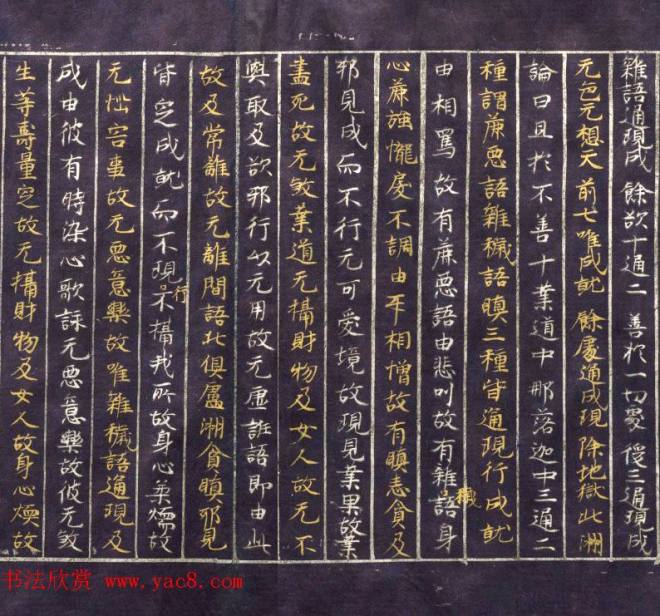 雜語通現成 餘欲十通二 善於一切處 後三通現成
无色无想天 前七唯成就 餘處通成現 除地獄北洲
論曰且於不善十業道中那落迦中三通二
種謂麁惡語雜穢語瞋三種皆通現行成就
由相罵故有麁惡語由悲叫故有雜穢語身
心麁強㦬戾不調由互相憎故有瞋恚貪及
邪見成而不行无可愛境故現見業果故業
盡死故无殺業道无攝財物及女人故无不
與取及欲邪行以无用故无虛誑語即由此
故及常離故无離間語北俱盧洲貪瞋邪見
皆定成就而不現行不攝我所故身心柔煗故
无惱害事故无惡意樂故唯雜穢語通現及
成由彼有時染心歌詠无惡意樂故彼无殺
生等壽量定故无攝財物及女人故身心煗故
书法欣赏 www.yac8.com